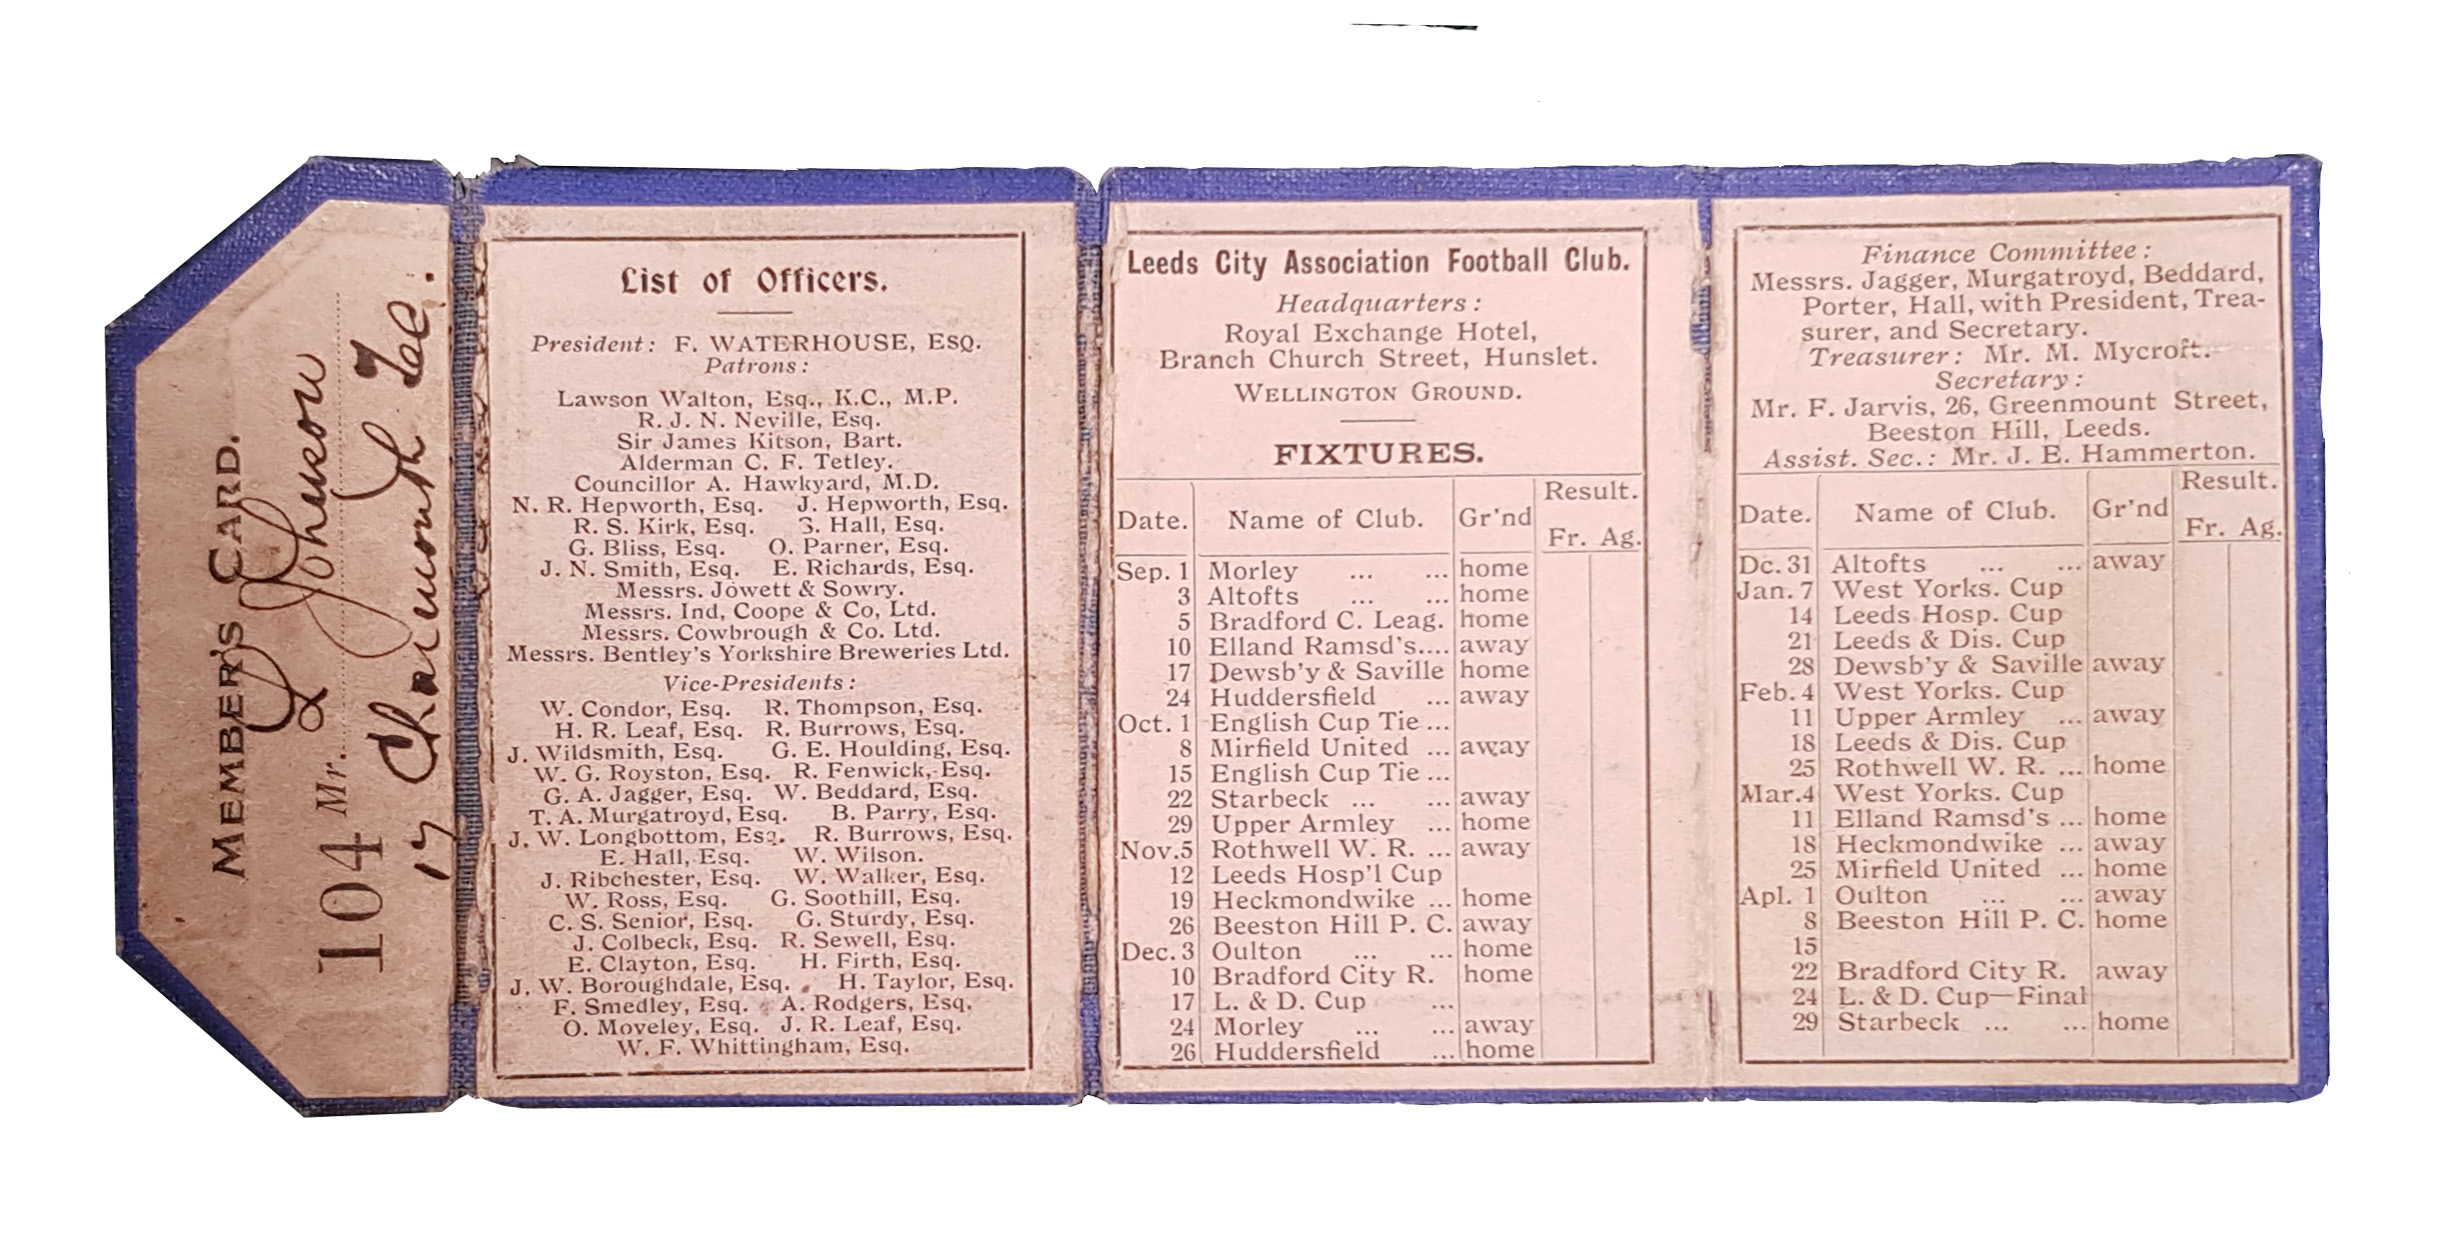 MEMBER'S CARD.
104 Mr. L Johnson
17 Charmouth Tce.
List of Officers.
President: F. WATERHOUSE, ESQ.
Patrons:
Lawson Walton, Esq., K.C., M.P.
R. J. N. Neville, Esq.
Sir James Kitson, Bart.
Alderman C. F. Tetley.
Councillor A. Hawkyard, M.D.
N. R. Hepworth, Esq. J. Hepworth, Esq.
R. S. Kirk, Esq. Hall, Esq.
G. Bliss, Esq. O. Parner, Esq.
J. N. Smith, Esq. E. Richards, Esq.
Messrs. Jowett & Sowry.
Messrs. Ind, Coope & Co, Ltd.
Messrs. Cowbrough & Co. Ltd.
Messrs. Bentley's Yorkshire Breweries Ltd.
Vice-Presidents:
W. Condor, Esq. R. Thompson, Esq.
H. R. Leaf, Esq. R. Burrows, Esq.
J. Wildsmith, Esq. G. E. Houlding, Esq.
W. G. Royston, Esq. R. Fenwick, Esq.
G. A. Jagger, Esq. W. Beddard, Esq.
T. A. Murgatroyd, Esq. B. Parry, Esq.
J. W. Longbottom, Esq. R. Burrows, Esq.
E. Hall, Esq. W. Wilson.
J. Ribchester, Esq. W. Walker, Esq.
W. Ross, Esq. G. Soothill, Esq.
C. S. Senior, Esq. G. Sturdy, Esq.
J. Colbeck, Esq. R. Sewell, Esq.
E. Clayton, Esq. H. Firth, Esq.
J. W. Boroughdale, Esq. H. Taylor, Esq.
F. Smedley, Esq. A. Rodgers, Esq.
O. Moveley, Esq. J. R. Leaf, Esq.
W. F. Whittingham, Esq.
Leeds City Association Football Club.
Headquarters:
Royal Exchange Hotel,
Branch Church Street, Hunslet.
WELLINGTON GROUND.
FIXTURES.
Date. Name of Club. Gr'nd Result.
Fr. Ag.
Sep. 1 Morley ... ... home
3 Altofts ... ... home
5 Bradford C. Leag. home
10 Elland Ramsd's.... away
17 Dewsb'y & Saville home
24 Huddersfield ... away
Oct. 1 English Cup Tie ...
8 Mirfield United ... away
15 English Cup Tie ...
22 Starbeck ... ... away
29 Upper Armley ... home
Nov.5 Rothwell W. R. ... away
12 Leeds Hosp'l Cup
19 Heckmondwike ... home
26 Beeston Hill P. C. away
Dec. 3 Oulton ... ... home
10 Bradford City R. home
17 L. & D. Cup ...
24 Morley ... ... away
26 Huddersfield ... home
Finance Committee:
Messrs. Jagger, Murgatroyd, Beddard,
Porter, Hall, with President, Trea-
surer, and Secretary.
Treasurer: Mr. M. Mycroft.
Secretary:
Mr. F. Jarvis, 26, Greenmount Street,
Beeston Hill, Leeds.
Assist. Sec.: Mr. J. E. Hammerton.
Date. Name of Club. Gr'nd Result.
Fr. Ag.
Dc. 31 Altofts ... ... away
Jan. 7 West Yorks. Cup
14 Leeds Hosp. Cup
21 Leeds & Dis. Cup
28 Dewsb'y & Saville away
Feb. 4 West Yorks. Cup
11 Upper Armley ... away
18 Leeds & Dis. Cup
25 Rothwell W. R. ... home
Mar.4 West Yorks. Cup
11 Elland Ramsd's ... home
18 Heckmondwike ... away
25 Mirfield United ... home
Apl. 1 Oulton ... ... away
8 Beeston Hill P. C. home
15
22 Bradford City R. away
24 L. & D. Cup—Final
29 Starbeck ... ... home